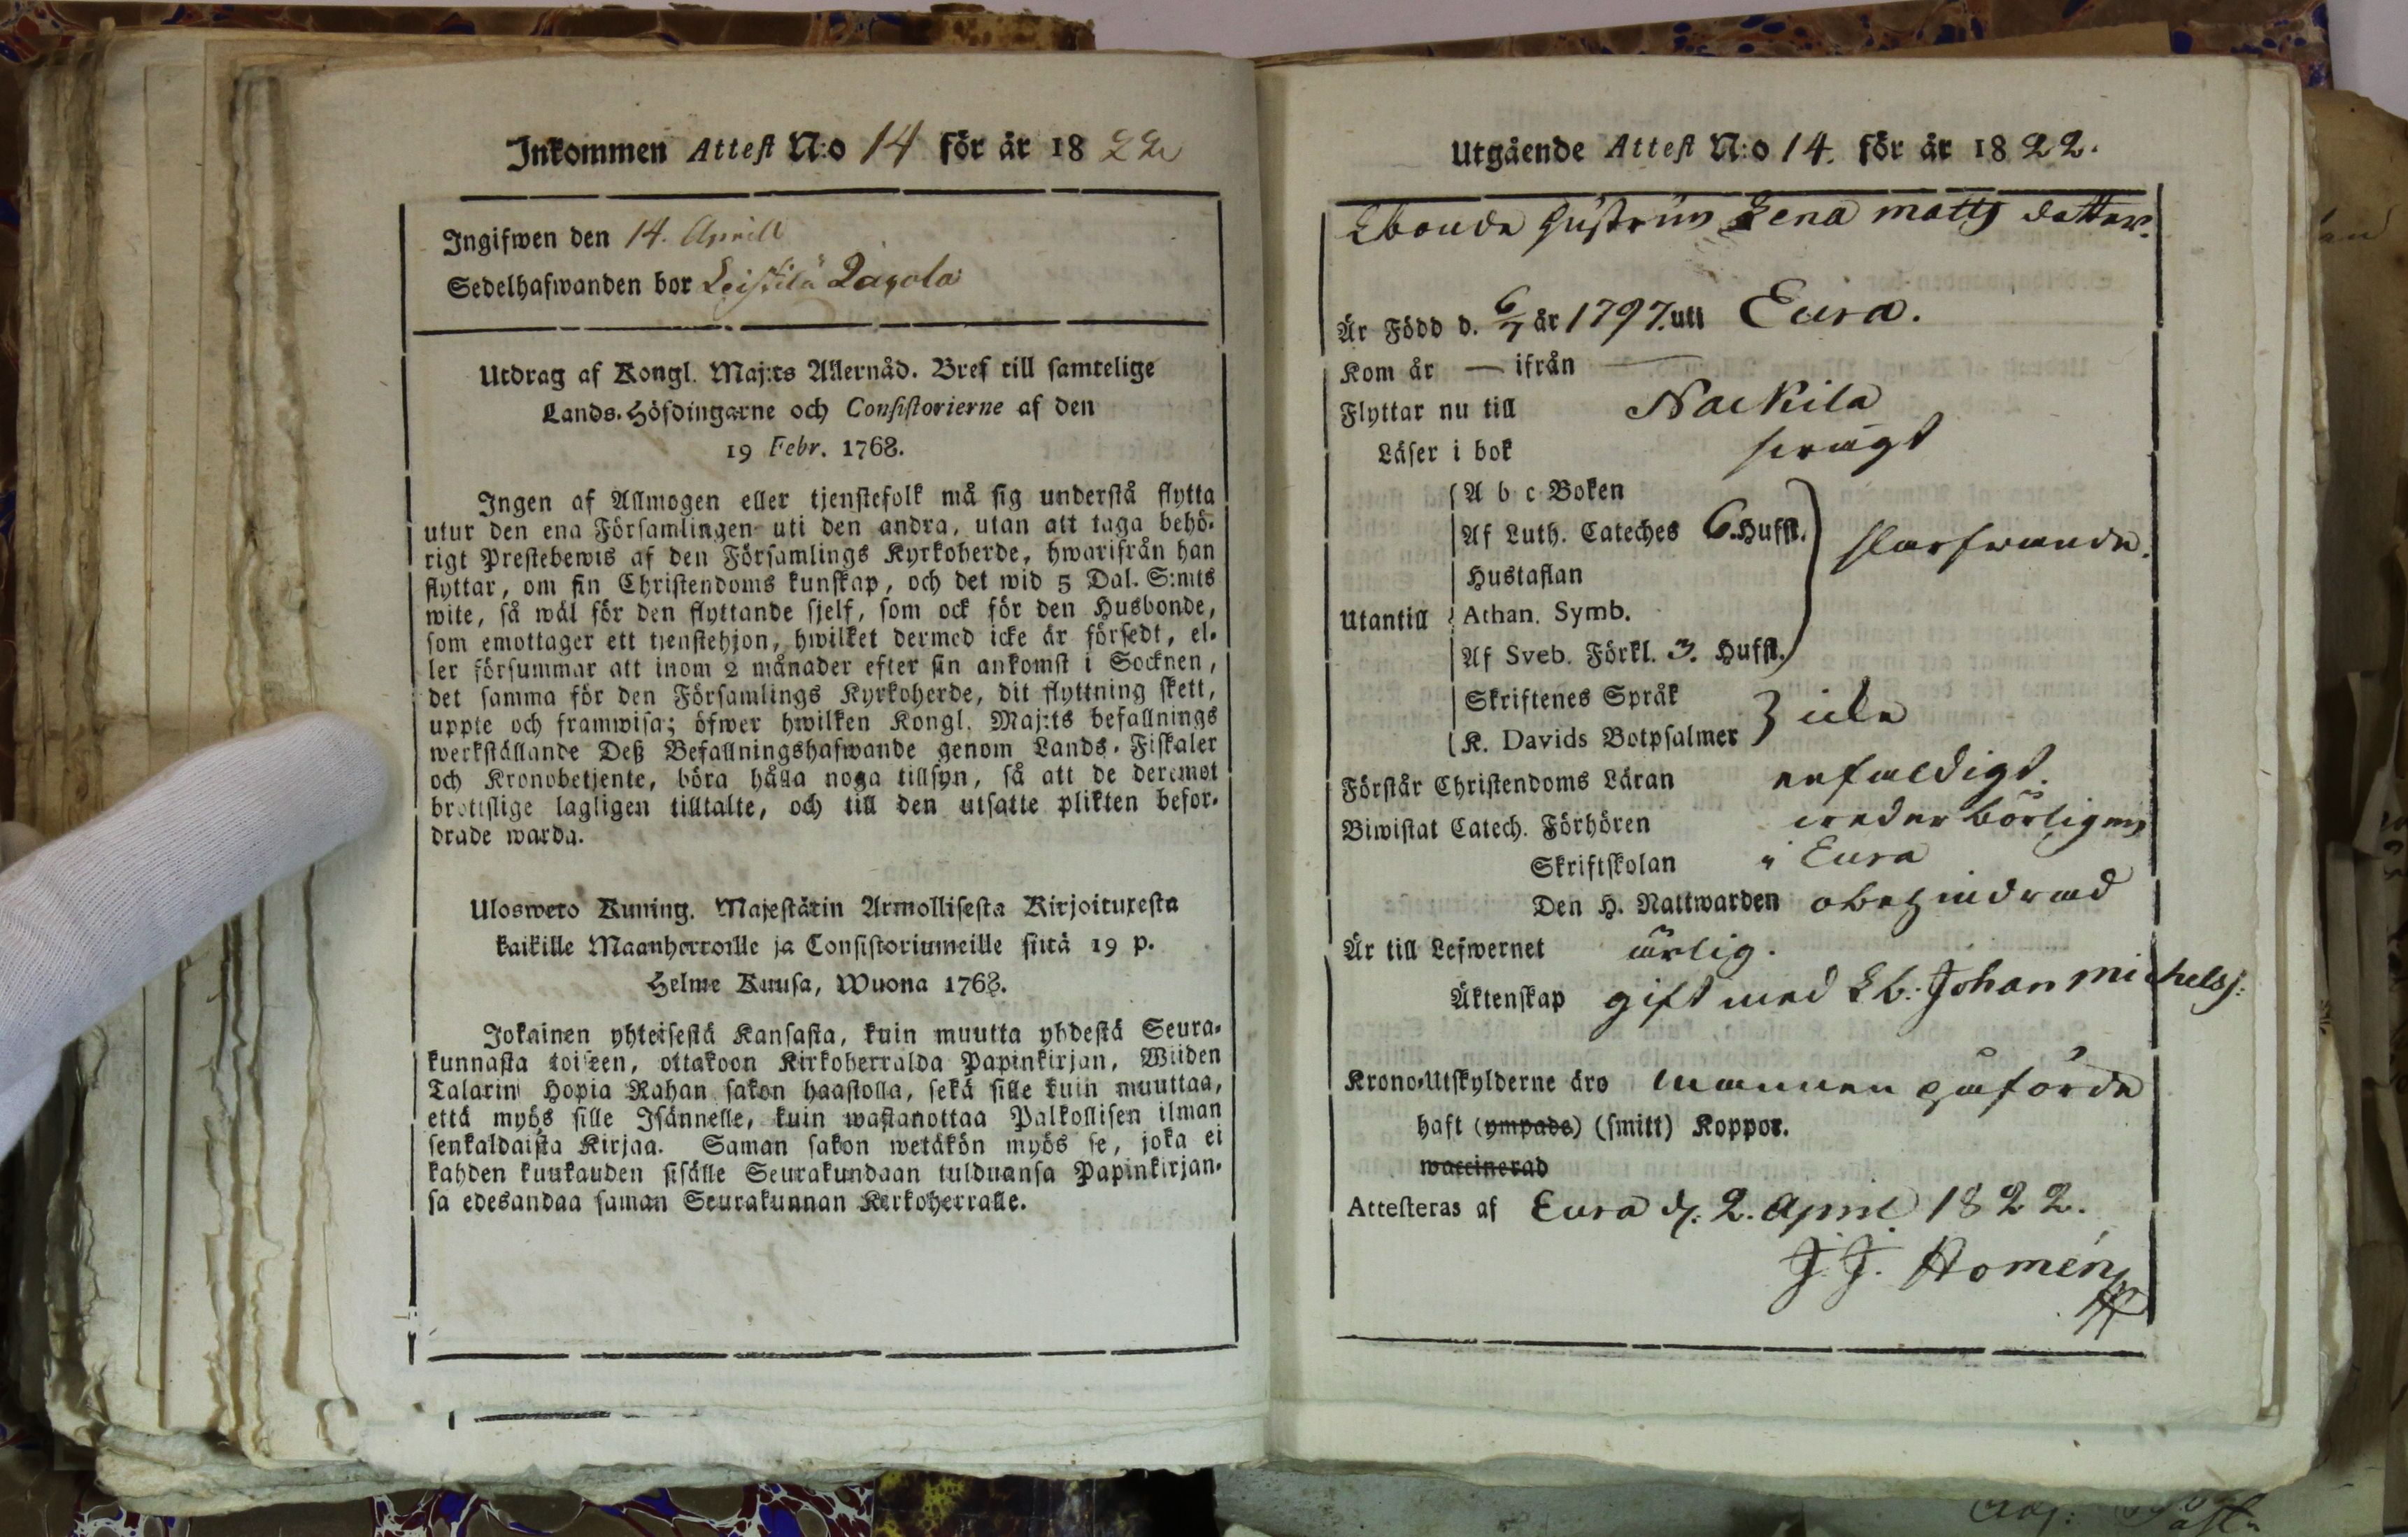 Inkommen Attest N:o 14 för år 1822
Ingifwen den 14. Aprill
Sedelhafwanden bor Leistilä
Utdrag af Kongl. Maj:ts Allernåd. Bref till samtelige
Lands-Höfdingarne och Consistorierne af den
19 Febr. 1768.
Ingen af Allmogen eller tjenstefolk må sig understå flytta
utur den ena Församlingen uti den andra, utan att taga behö-
rigt Prestebewis af den Församlings Kyrkoherde, hwarifrån han
flyttar, om sin Christendoms kunskap, och det wid 5 Dal. S:mts
wite, så wäl för den flyttande sjelf, som ock för den Husbonde,
som emottager ett tjenstehjon, hwilket dermed icke är försedt, el-
ler försummar att inom 2 månader efter sin ankomst i Socknen,
det samma för den Församlings Kyrkoherde, dit flyttning skett,
uppte och framwisa; öfwer hwilken Kongl. Maj:ts befallnings
werkställande Deß Befallningshafwande genom Lands-Fiskaler
och Kronobetjente, böra hålla noga tillsyn, så att de deremot
brottslige lagligen tilltalte, och till den utsatte plikten befor-
drade warda.
Uloswero Kuning. Majestätin Armollisesta Kirjoituxesta
kaikille Maanherroille ja Consistoriumeille siitä 19 p.
Helme Kuusa, Wuona 1768.
Jokainen yhteisestä Kansasta, kuin muutta yhdestä Seura-
kunnasta toiseen, ottakoon Kirkoherralda Papinkirjan, Wiiden
Talarin Hopia Rahan sakon haastolla, sekä sille kuin muuttaa,
että myös sille Isännelle, kuin wastanottaa Palkollisen ilman
senkaldaista Kirjaa. Saman sakon wetäkön myös se, joka ei
kahden kuukauden sisälle Seurakundaan tulduansa Papinkirjan-
sa edesandaa saman Seurakunnan Kirkoherralle.
Utgående Attest N:o 14. för år 1822.
Lbonde hustrun Lena Matts dotter.
Är Född d. 6/7 år 1797. uti Eura.
Kom år — ifrån —
Flyttar nu till Nackila
Läser i bok swagt
A b c Boken
Af Luth. Cateches 6. Hufst.
Hustaflan
slarfwande.
Utantill Athan. Symb.
Af Sveb. Förkl. 3. Hufst.
Skriftenes Språk
icke
K. Davids Botpsalmer
Förstår Christendoms Läran enfaldigt.
Biwistat Catech. Förhören wederbörligen
Skriftskolan i Eura
Den H. Nattwarden obehindrad
Är till Lefwernet ärlig.
Äktenskap gift med Lb: Johan Michelss:
Krono-Utskylderne äro mannen påförde
haft (ympade) (smitt) Koppor.
waccinerad
Attesteras af Eura d. 2. April 1822.
J. J. Homén